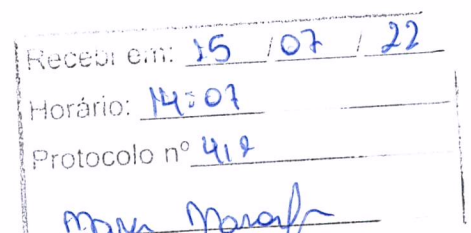 Recebi em: 15 / 07 / 22
Horário: 14:07
Protocolo nº 419